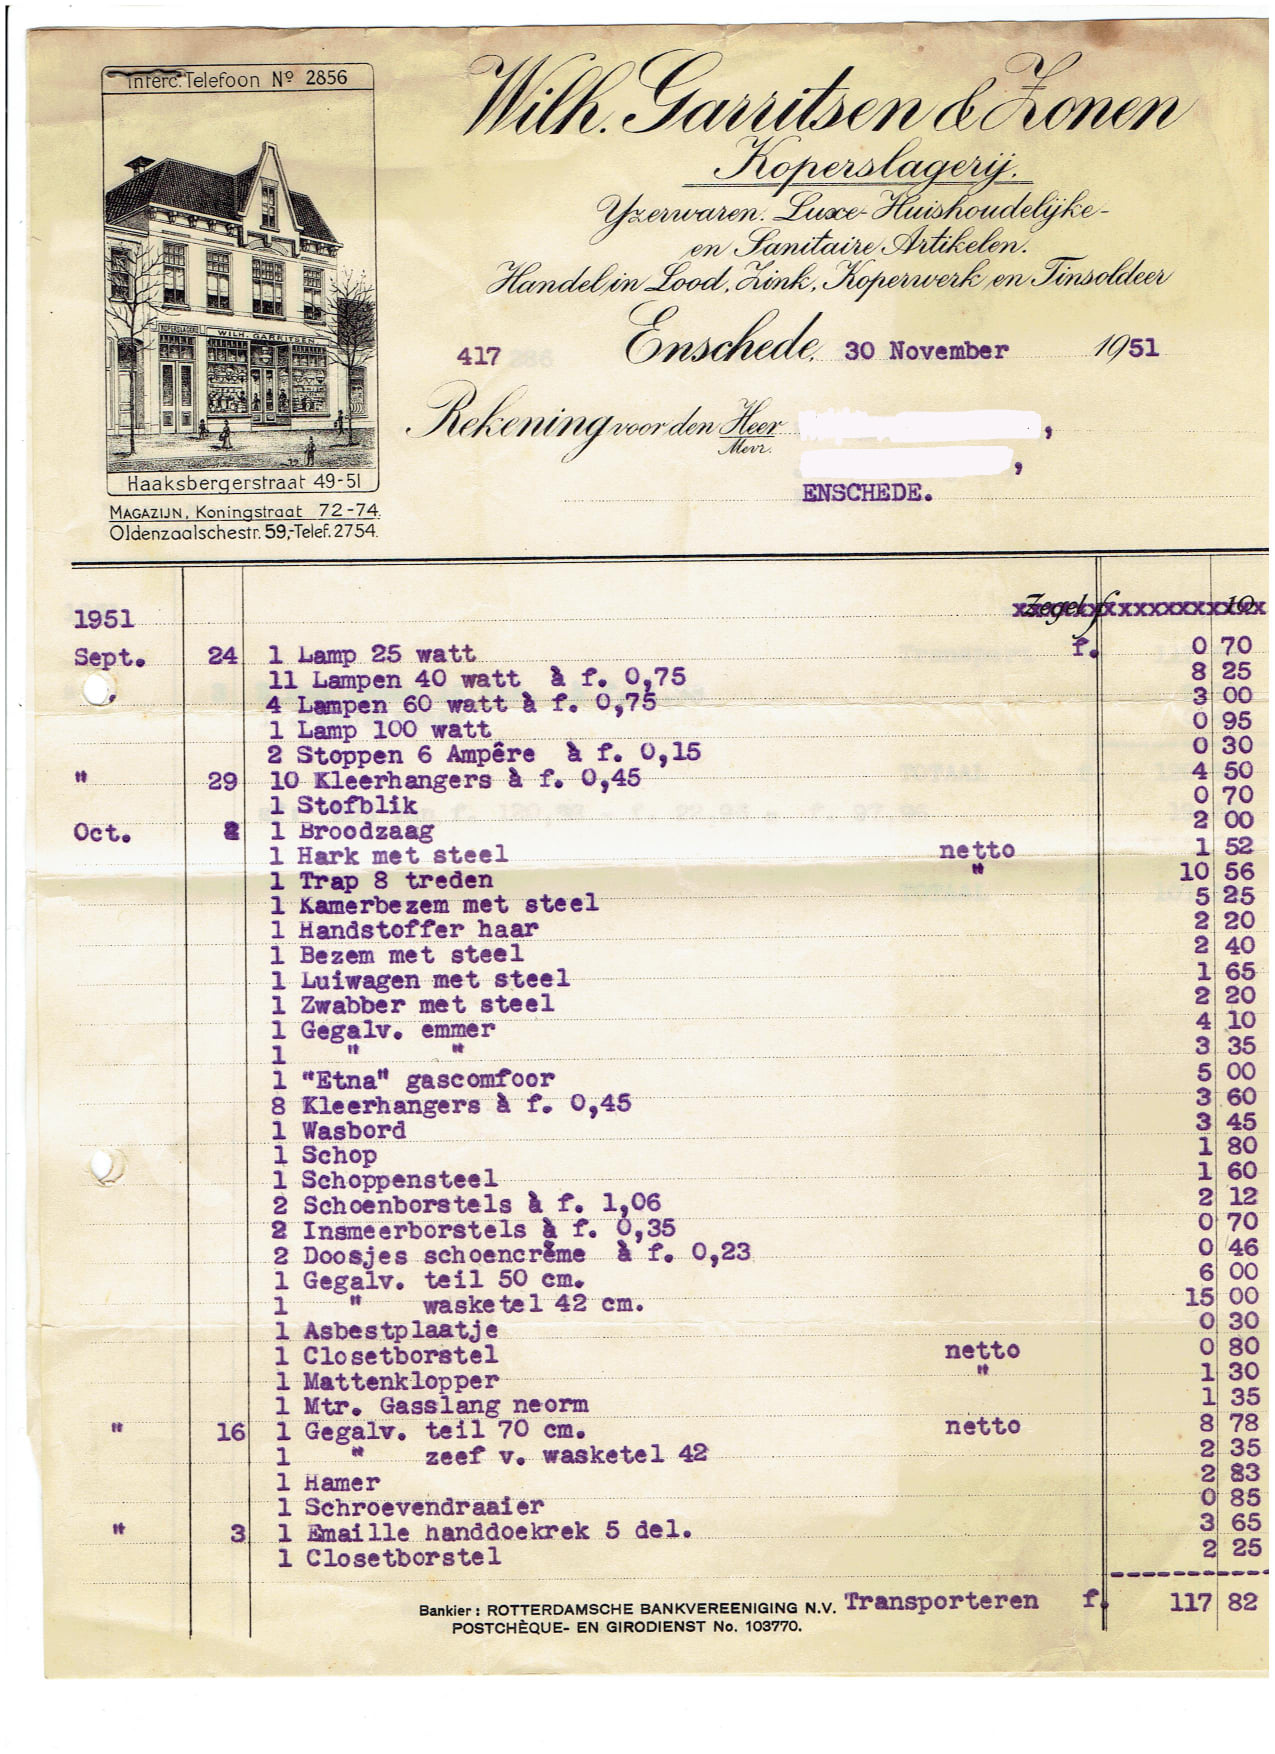 Interc. Telefoon Nº 2856
KOPERSLAGERIJ WILH. GARRITSEN
Haaksbergerstraat 49-51
MAGAZIJN, Koningstraat 72-74.
Oldenzaalschestr. 59,-Telef. 2754.
Wilh. Garritsen & Zonen
Koperslagerij.
Yzerwaren. Luxe- Huishoudelijke-
en Sanitaire Artikelen.
Handel in Lood, Zink, Koperwerk en Tinsoldeer
417 Enschede, 30 November 1951
Rekening voor den Heer ,
Mevr.
,
ENSCHEDE.
Zegel f 10
1951
Sept. 24 1 Lamp 25 watt f. 0 70
11 Lampen 40 watt à f. 0,75 8 25
4 Lampen 60 watt à f. 0,75 3 00
1 Lamp 100 watt 0 95
2 Stoppen 6 Ampêre à f. 0,15 0 30
" 29 10 Kleerhangers à f. 0,45 4 50
1 Stofblik 0 70
Oct. 2 1 Broodzaag 2 00
1 Hark met steel netto 1 52
1 Trap 8 treden " 10 56
1 Kamerbezem met steel 5 25
1 Handstoffer haar 2 20
1 Bezem met steel 2 40
1 Luiwagen met steel 1 65
1 Zwabber met steel 2 20
1 Gegalv. emmer 4 10
1 " " 3 35
1 "Etna" gascomfoor 5 00
8 Kleerhangers à f. 0,45 3 60
1 Wasbord 3 45
1 Schop 1 80
1 Schoppensteel 1 60
2 Schoenborstels à f. 1,06 2 12
2 Insmeerborstels à f. 0,35 0 70
2 Doosjes schoencrême à f. 0,23 0 46
1 Gegalv. teil 50 cm. 6 00
1 " wasketel 42 cm. 15 00
1 Asbestplaatje 0 30
1 Closetborstel netto 0 80
1 Mattenklopper " 1 30
1 Mtr. Gasslang neorm 1 35
" 16 1 Gegalv. teil 70 cm. netto 8 78
1 " zeef v. wasketel 42 2 35
1 Hamer 2 83
1 Schroevendraaier 0 85
" 3 1 Emaille handdoekrek 5 del. 3 65
1 Closetborstel 2 25
Transporteren f. 117 82
Bankier: ROTTERDAMSCHE BANKVEREENIGING N.V.
POSTCHÈQUE- EN GIRODIENST No. 103770.